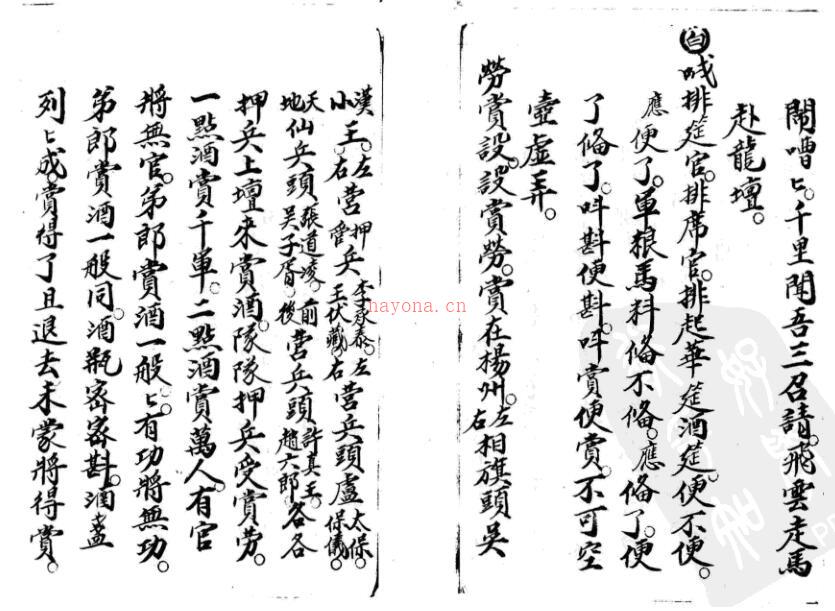 鬧嘈〻。千里聞吾三召請。飛雲走馬
赴龍壇。
白 喊排筵官。排席官。排起華筵酒筵。便不便。
應便了。軍粮馬料俻不俻。應俻了。便
了俻了。呌斟便斟。呌賞便賞。不可空
壺虛弄。
勞賞設。設賞勞。賞在楊州。左右相旗頭吳
漢小王。左右营押管兵李永泰。王伏藏。左右营兵頭盧太保。保儀。
天地仙兵頭張道凌。吳子胥。前後营兵頭許真王。趙六郎。各各
押兵上壇來賞酒。隊隊押兵受賞劳。
一點酒賞千軍。二點酒賞萬人。有官
將無官。弟郎賞酒一般〻。有功將無功。
弟郎賞酒一般同。酒瓶密密斟。酒盞
列〻成。賞得了且退去。未蒙將得賞。
nayona.cn